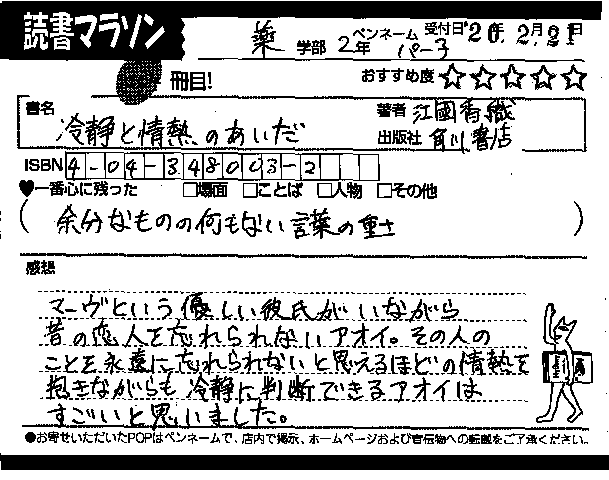 読書マラソン
薬 学部 2年 ペンネーム パーコ 受付日 20. 2月 21日
冊目! おすすめ度 ☆☆☆☆☆
書名 冷静と情熱のあいだ
著者 江國香織
出版社 角川書店
ISBN 4-04-348003-2
♥一番心に残った □場面 □ことば □人物 □その他
(余分なものの何もない言葉の重さ)
感想
マーヴという優しい彼氏がいながら
昔の恋人を忘れられないアオイ。その人の
ことを永遠に忘れられないと思えるほどの情熱を
抱きながらも冷静に判断できるアオイは
すごいと思いました。
●お寄せいただいたPOPはペンネームで、店内で掲示、ホームページおよび宣伝物への転載をご了承ください。